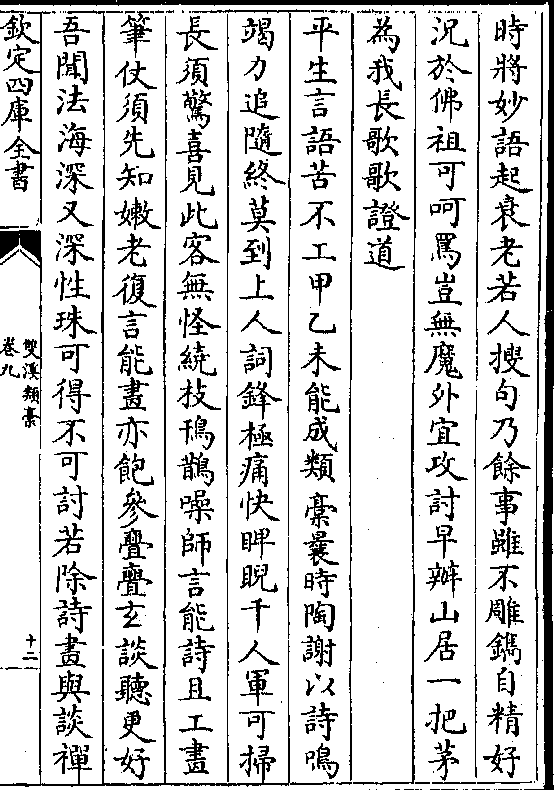 時將妙語起衰老若人搜句乃餘事雖不雕鐫自精好
況於佛祖可呵罵豈無魔外宜攻討早辦山居一把茅
為我長歌歌證道
平生言語苦不工甲乙未能成類槀曩時陶謝以詩鳴
竭力追隨終莫到上人詞鋒極痛快睥睨千人軍可掃
長須驚喜見此客無怪繞枝鳲鵲噪師言能詩且工畫
筆仗須先知嫩老復言能畫亦飽參亹亹玄談聽更好
吾聞法海深又深性珠可得不可討若除詩畫與談禪
欽定四庫全書
雙溪類槀
卷九
十二